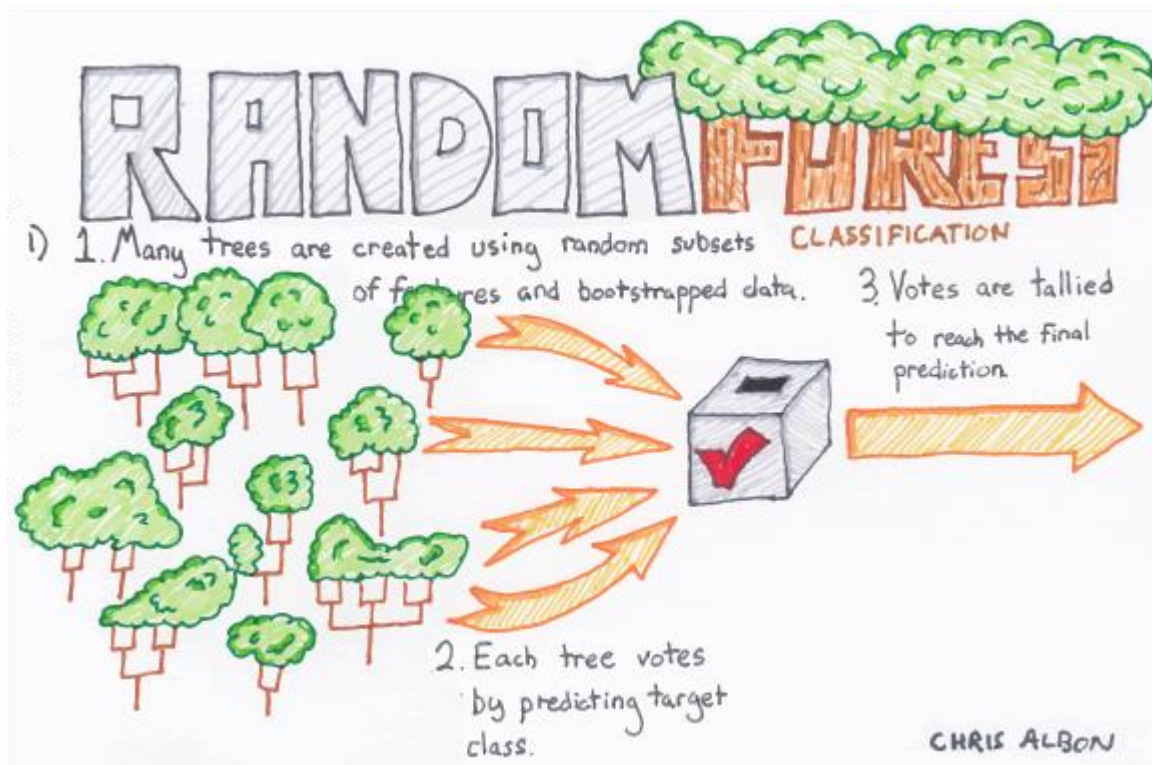 RANDOM FOREST
CLASSIFICATION
1) 1. Many trees are created using random subsets
of features and bootstrapped data.
3. Votes are tallied
to reach the final
prediction.
2. Each tree votes
by predicting target
class.
CHRIS ALBON